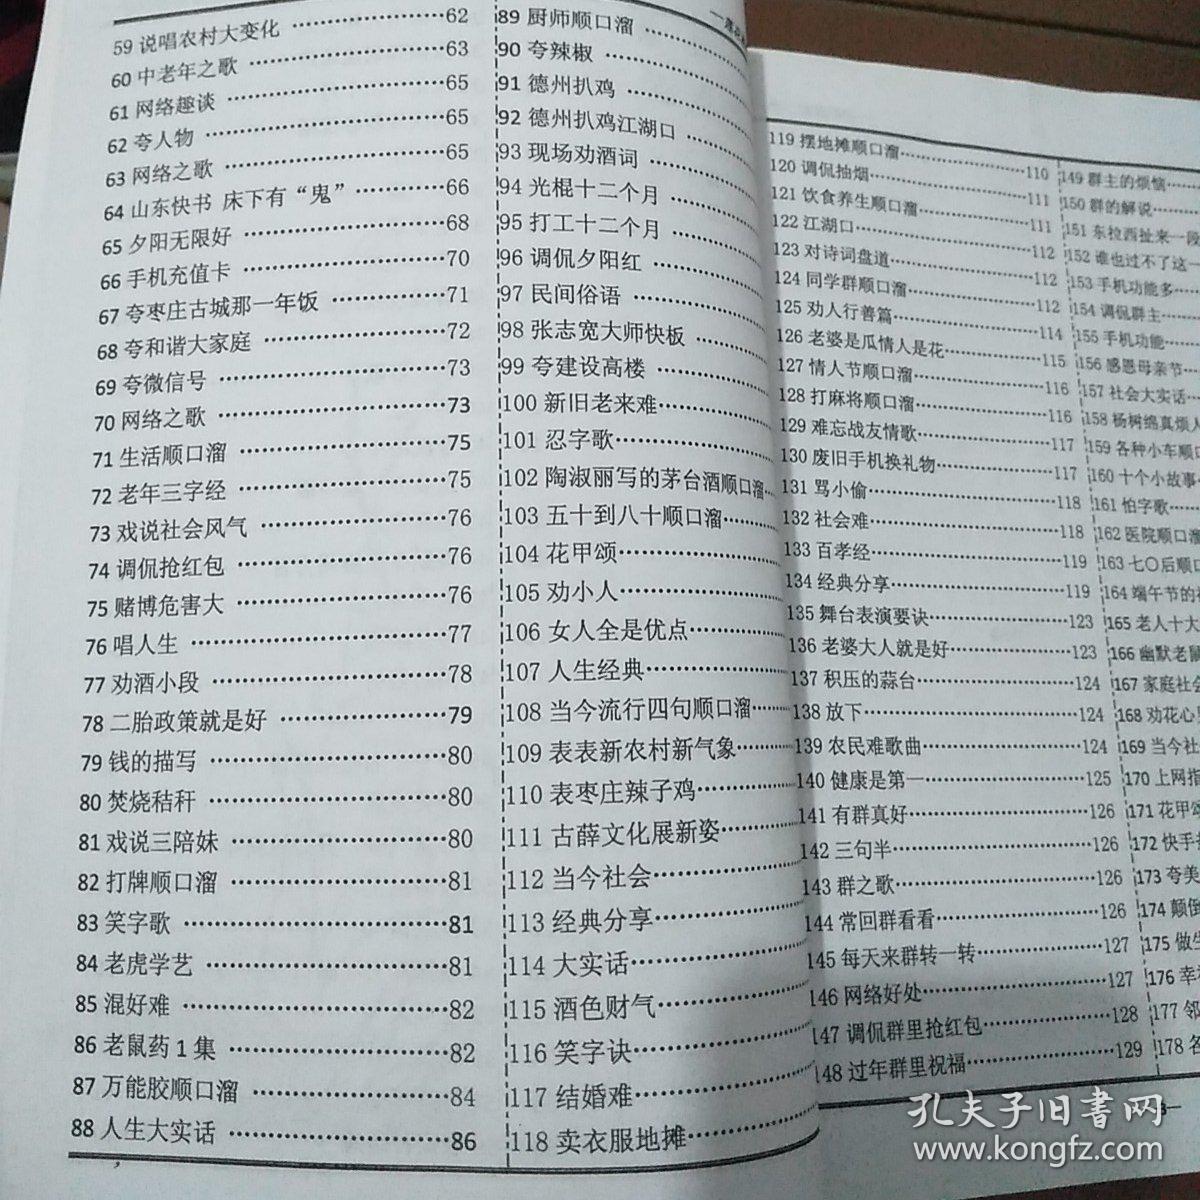 59 说唱农村大变化 62
60 中老年之歌 63
61 网络趣谈 65
62 夸人物 65
63 网络之歌 65
64 山东快书 床下有“鬼” 66
65 夕阳无限好 68
66 手机充值卡 70
67 夸枣庄古城那一年饭 71
68 夸和谐大家庭 72
69 夸微信号 73
70 网络之歌 73
71 生活顺口溜 75
72 老年三字经 75
73 戏说社会风气 76
74 调侃抢红包 76
75 赌博危害大 76
76 唱人生 77
77 劝酒小段 78
78 二胎政策就是好 79
79 钱的描写 80
80 焚烧秸秆 80
81 戏说三陪妹 80
82 打牌顺口溜 81
83 笑字歌 81
84 老虎学艺 81
85 混好难 82
86 老鼠药1集 82
87 万能胶顺口溜 84
88 人生大实话 86
89 厨师顺口溜
90 夸辣椒
91 德州扒鸡
92 德州扒鸡江湖口
93 现场劝酒词
94 光棍十二个月
95 打工十二个月
96 调侃夕阳红
97 民间俗语
98 张志宽大师快板
99 夸建设高楼
100 新旧老来难
101 忍字歌
102 陶淑丽写的茅台酒顺口溜
103 五十到八十顺口溜
104 花甲颂
105 劝小人
106 女人全是优点
107 人生经典
108 当今流行四句顺口溜
109 表表新农村新气象
110 表枣庄辣子鸡
111 古薛文化展新姿
112 当今社会
113 经典分享
114 大实话
115 酒色财气
116 笑字诀
117 结婚难
118 卖衣服地摊
119 摆地摊顺口溜 110
120 调侃抽烟 111
121 饮食养生顺口溜 111
122 江湖口 112
123 对诗词盘道 112
124 同学群顺口溜 112
125 劝人行善篇 114
126 老婆是瓜情人是花 115
127 情人节顺口溜 116
128 打麻将顺口溜 116
129 难忘战友情歌 117
130 废旧手机换礼物 117
131 骂小偷 118
132 社会难 118
133 百孝经 119
134 经典分享 119
135 舞台表演要诀 123
136 老婆大人就是好 123
137 积压的蒜台 124
138 放下 124
139 农民难歌曲 124
140 健康是第一 125
141 有群真好 126
142 三句半 126
143 群之歌 126
144 常回群看看 126
145 每天来群转一转 127
146 网络好处 127
147 调侃群里抢红包 128
148 过年群里祝福 129
149 群主的烦恼
150 群的解说
151 东拉西扯来一段
152 谁也过不了这一
153 手机功能多
154 调侃群主
155 手机功能
156 感恩母亲节
157 社会大实话
158 杨树绵真烦人
159 各种小车顺口
160 十个小故事
161 怕字歌
162 医院顺口溜
163 七〇后顺口
164 端午节的
165 老人十大
166 幽默老鼠
167 家庭社会
168 劝花心
169 当今社
170 上网指
171 花甲颂
172 快手
173 夸美
174 颠倒
175 做生
176 幸
177 邻
178 各
孔夫子旧书网
www.kongfz.com